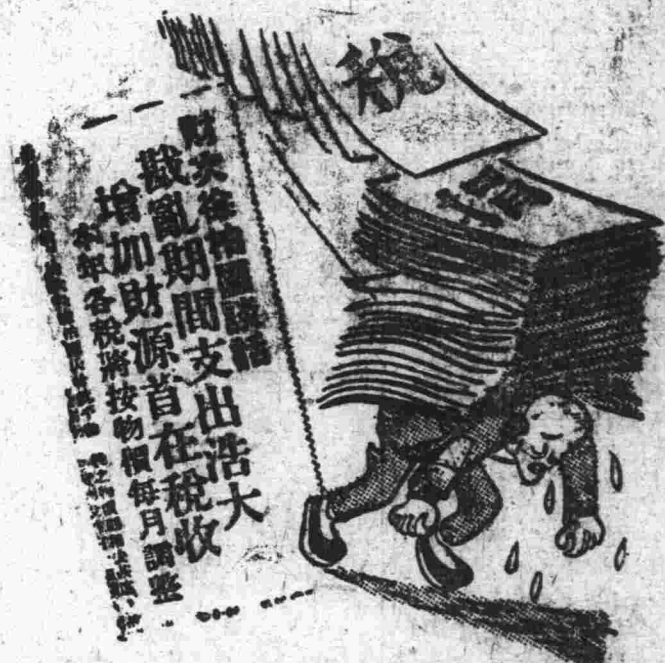 稅
單
財次徐柏園談話
戡亂期間支出浩大
增加財源首在稅收
本年各稅將按物價每月調整